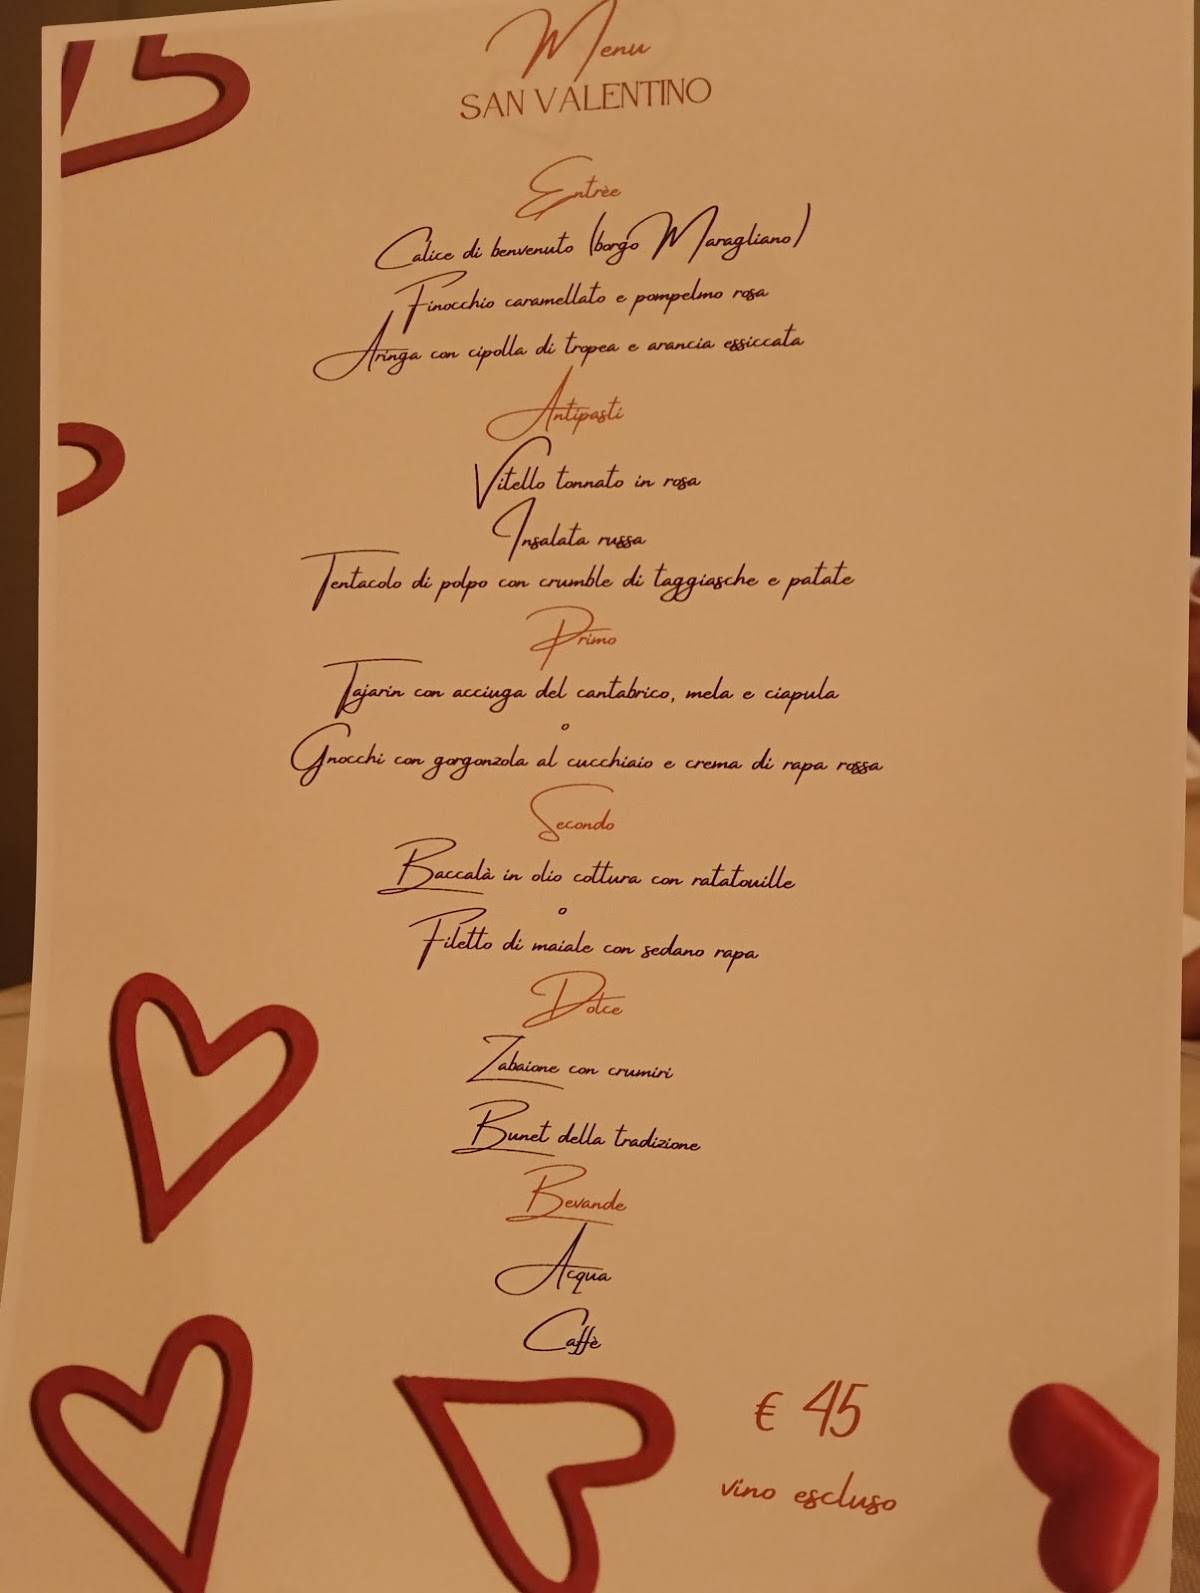 Menu
SAN VALENTINO
Entrèe
Calice di benvenuto (borgo Maragliano)
Finocchio caramellato e pompelmo rosa
Aringa con cipolla di tropea e arancia essiccata
Antipasti
Vitello tonnato in rosa
Insalata russa
Tentacolo di polpo con crumble di taggiasche e patate
Primo
Tajarin con acciuga del cantabrico, mela e ciapula
o
Gnocchi con gorgonzola al cucchiaio e crema di rapa rossa
Secondo
Baccalà in olio cottura con ratatouille
o
Filetto di maiale con sedano rapa
Dolce
Zabaione con crumiri
Bunet della tradizione
Bevande
Acqua
Caffè
€ 45
vino escluso